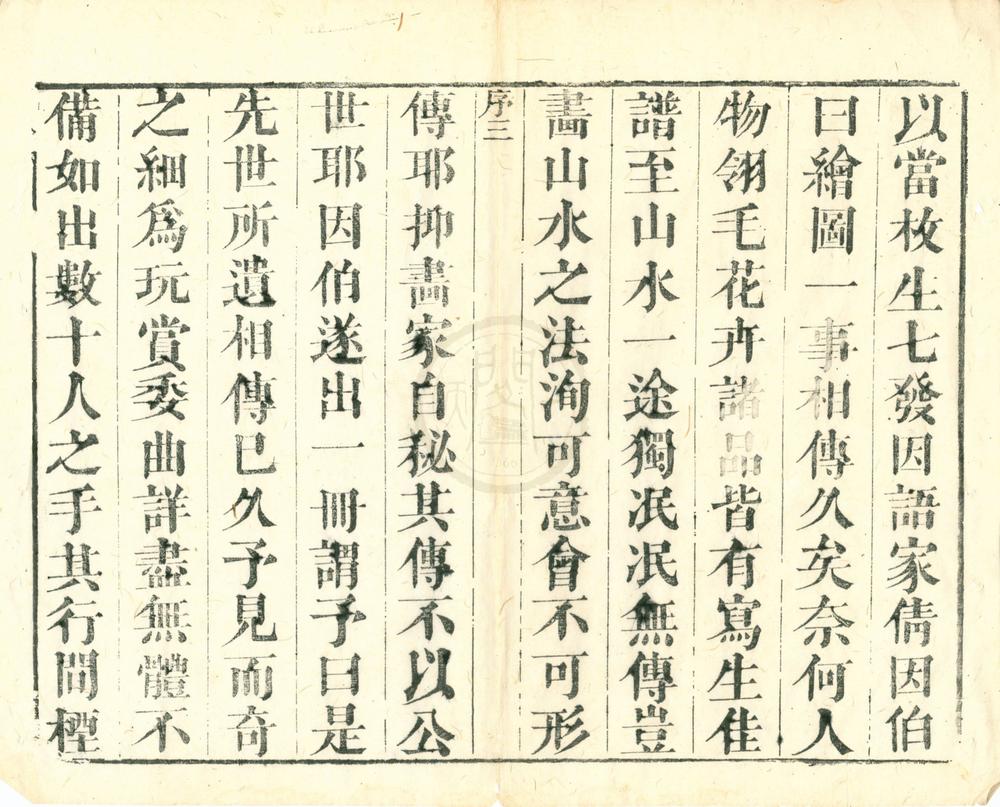 以當枚生七發因語家倩因伯
曰繪圖一事相傳久矣奈何人
物翎毛花卉諸品皆有寫生佳
譜至山水一途獨泯泯無傳豈
畵山水之法洵可意會不可形
序三
傳耶抑畵家自秘其傳不以公
世耶因伯遂出一冊謂予曰是
先世所遺相傳已久予見而奇
之細爲玩賞委曲詳盡無體不
備如出數十人之手其行間標